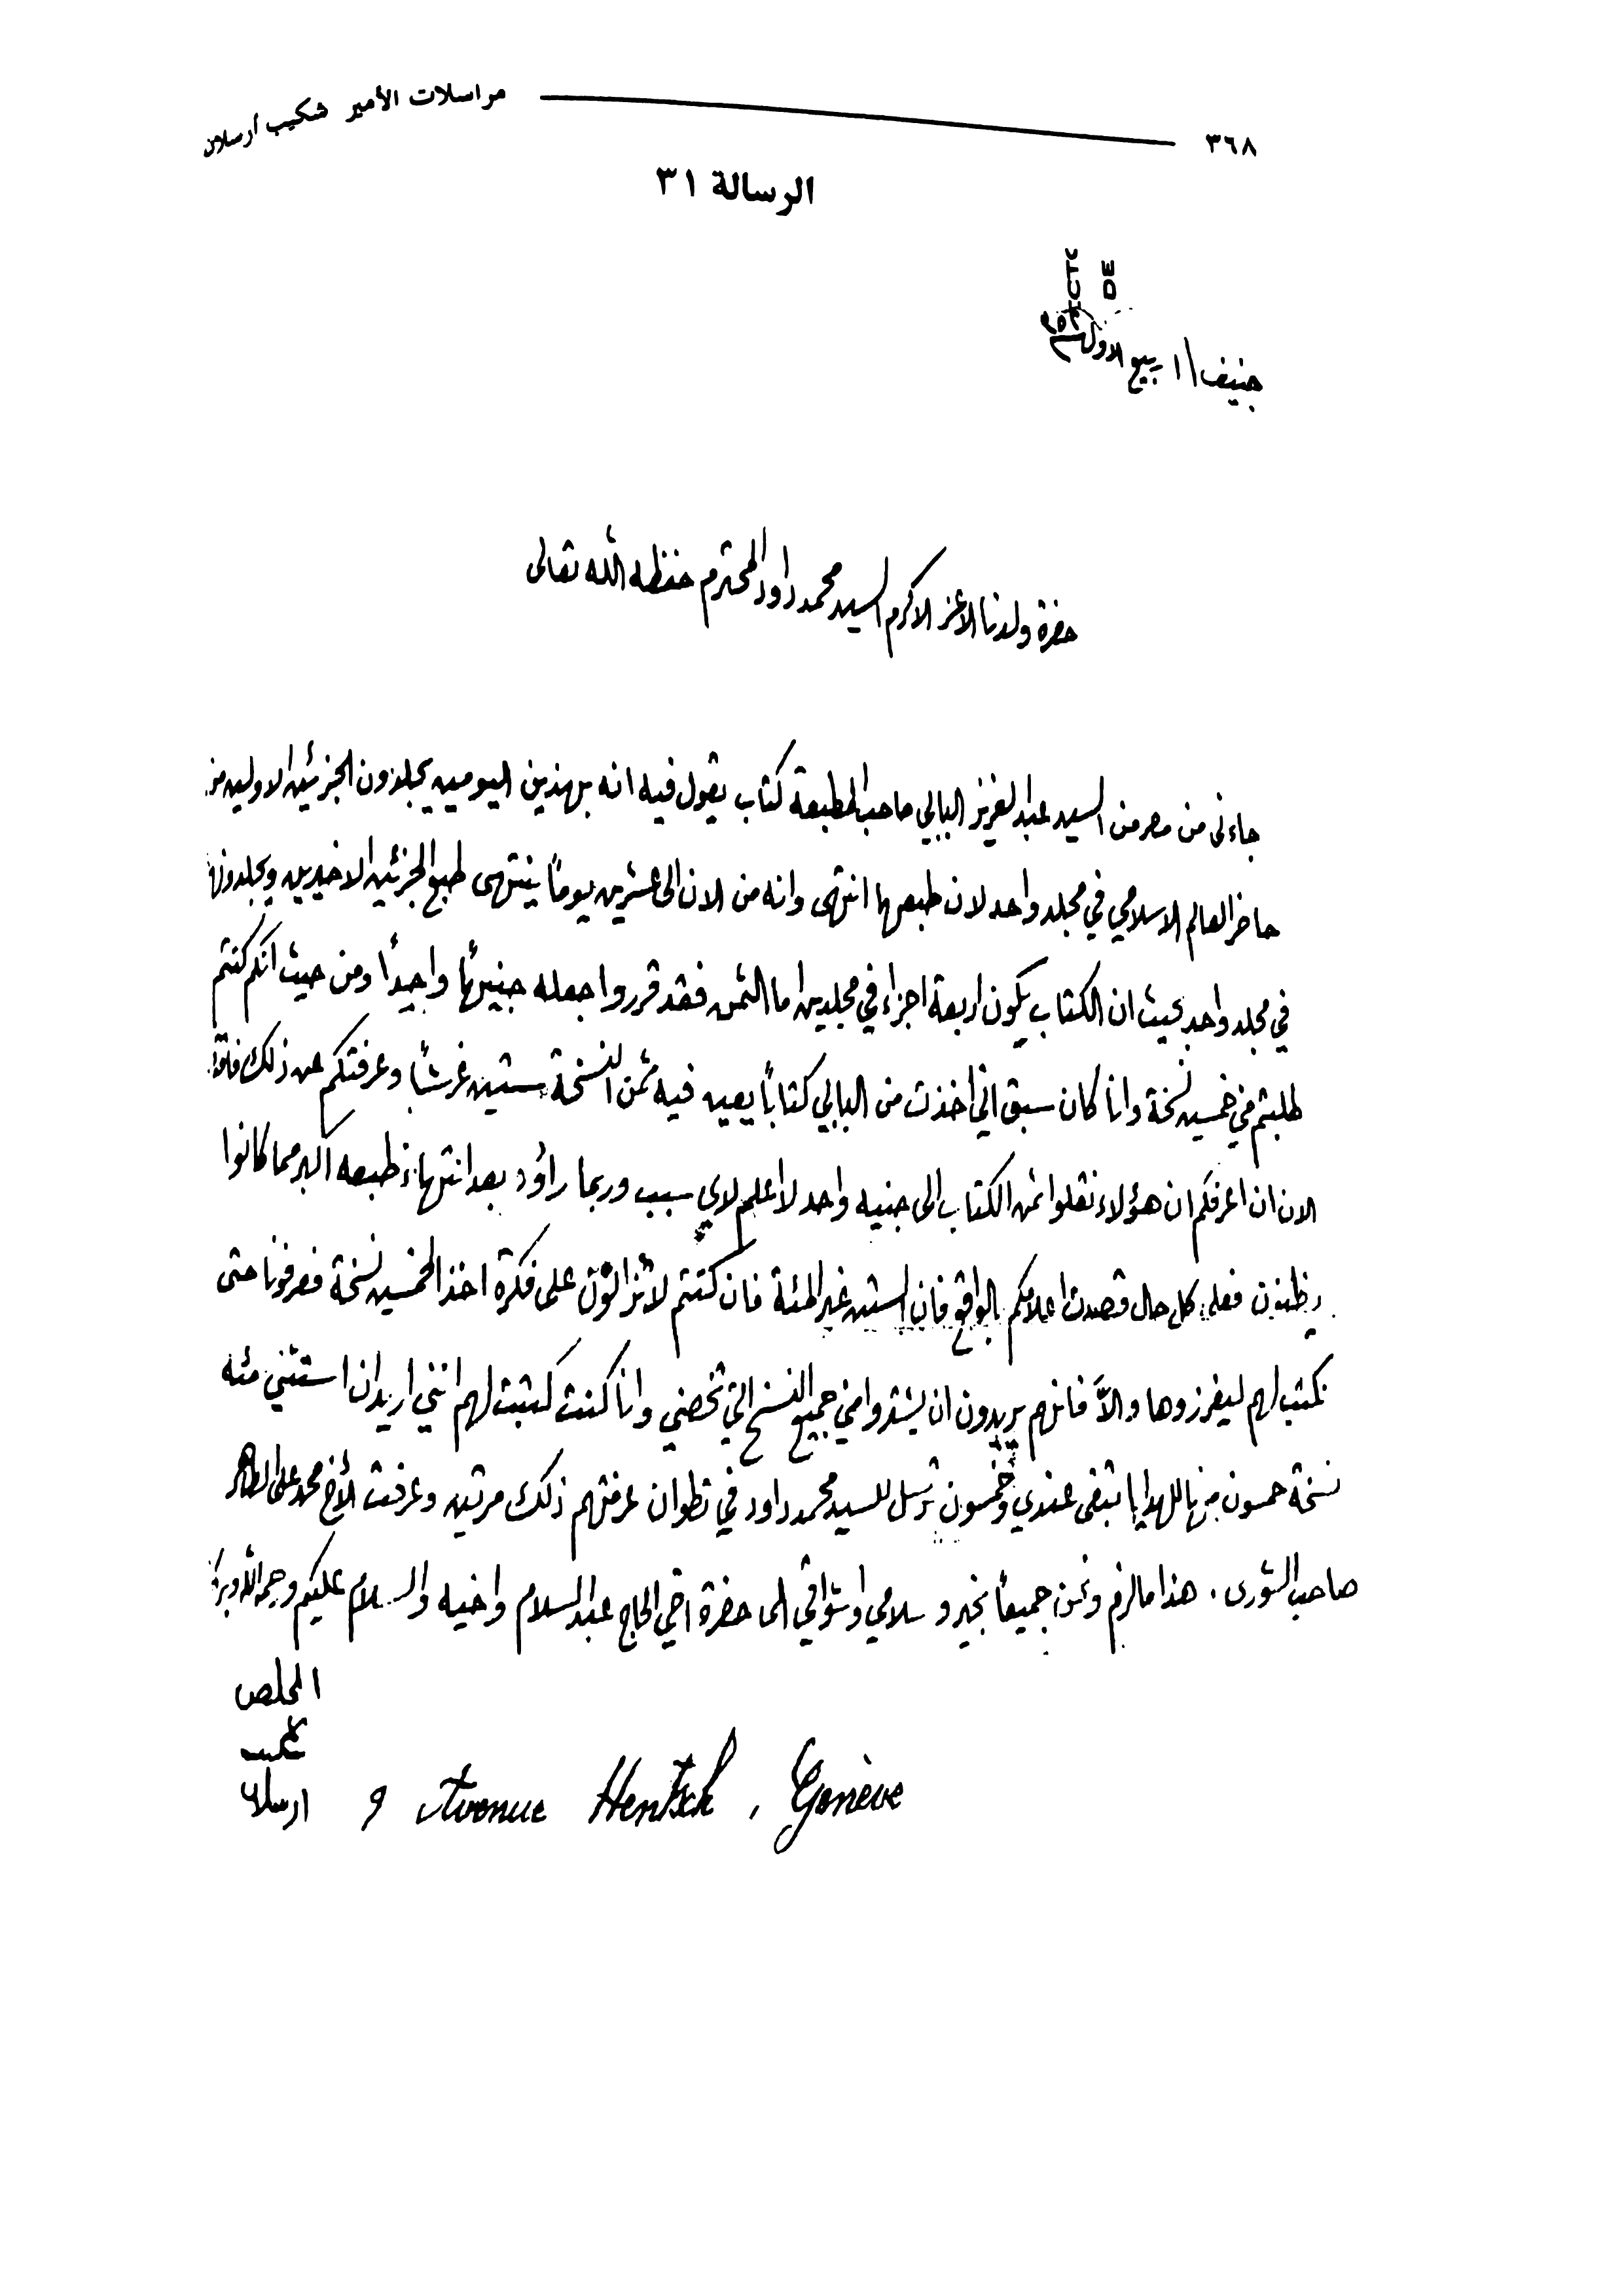 ٣٦٨ مراسلات الأمير شكيب أرسلان
الرسالة ٣١
DE
جنيف ١١ ربيع الاول
حضرة ولدنا الاعز الاكرم السيد محمد داود المحترم حفظه الله تعالى
جاءني من مصر من السيد عبد العزيز البابي صاحب المطبعة كتاب يقول فيه انه بهذين اليومين يجلدون الجزئين الاولين من
حاضر العالم الاسلامي في مجلد واحد لان طبعها انتهى وانه من الان الى عشرين يوماً ينتهى طبع الجزئين الاخيرين ويجلدونها
في مجلد واحد بحيث ان الكتاب يكون اربعة اجزاء في مجلدين اما الثمن فقد قرروا جعله جنيهاً واحداً ومن حيث انكم كنتم
طلبتم مني خمسين نسخة وانا كان سبق اني اخذت من البابي كتاباً يعين فيه ثمن النسخة ستين غرشاً وعرفتكم عن ذلك
الان ان اعرفكم ان هؤلاء نقلوا ثمن الكتاب الى جنيه واحد لا اعلم لاي سبب وربما راؤه بعد انتهاء طبعه اكبر مما كانوا
يظنون فعلى كل حال قصدت اعلامكم بالواقع فان الستين غير المئة فان كنتم لا تزالون على فكرة اخذ الخمسين نسخة فعرفونا حتى
نكتب لهم ليفرزوها والاّ فانهم يريدون ان يشتروا مني جميع النسخ التي تخصني وانا كنت كتبت لهم انني اريد ان استثني مئه
نسخة خمسون منها للهدايا تبقى عندي وخمسون ترسل للسيد محمد داود في تطوان عرفتهم ذلك مرتين وعرفت الأخ محمد علي الطاهر
صاحب الشورى . هذا ما لزم ونحن جميعاً بخير وسلامي واشواقي الى حضرة اخي الحاج عبد السلام واخيه والسلام عليكم ورحمة الله وبركاته
المخلص
شكيب
ارسلان
9 Avenue Hentsch, Genève